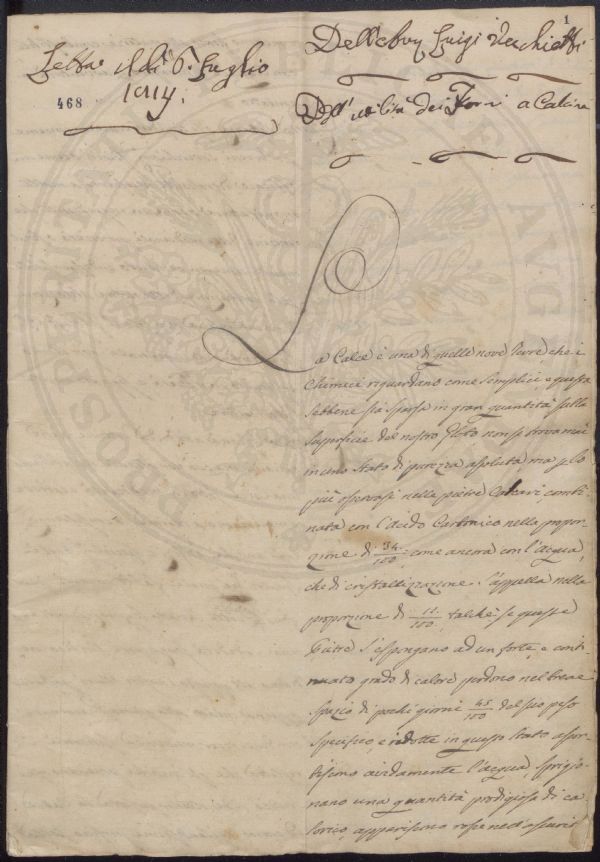 1
Letta il dì 6. Luglio
1814.
468
Dell'
Luigi Vecchietti
Dell'utilità dei Forni a Calcina
La Calce è una di quelle nove Terre che i
Chimici riguardano come semplici e questa
sebbene sia sparsa in gran quantità sulla
superficie del nostro Globo non si trova mai
in uno stato di purezza assoluta, ma p lo
più osservasi nelle pietre Calcari combi-
nata con l'acido Carbonico nella propor-
zione di 34/100, come ancora con l'acqua,
che di cristallizzazione s'appella nella
proporzione di 11/100, talchè se queste
Pietre s'espongano ad un forte, e conti-
nuato grado di calore perdono nel breve
spazio di pochi giorni 45/100 del suo peso
specifico, e ridotte in questo stato assor-
bono avidamente l'acqua, sprigio-
nano una quantità prodigiosa di ca-
lorico,